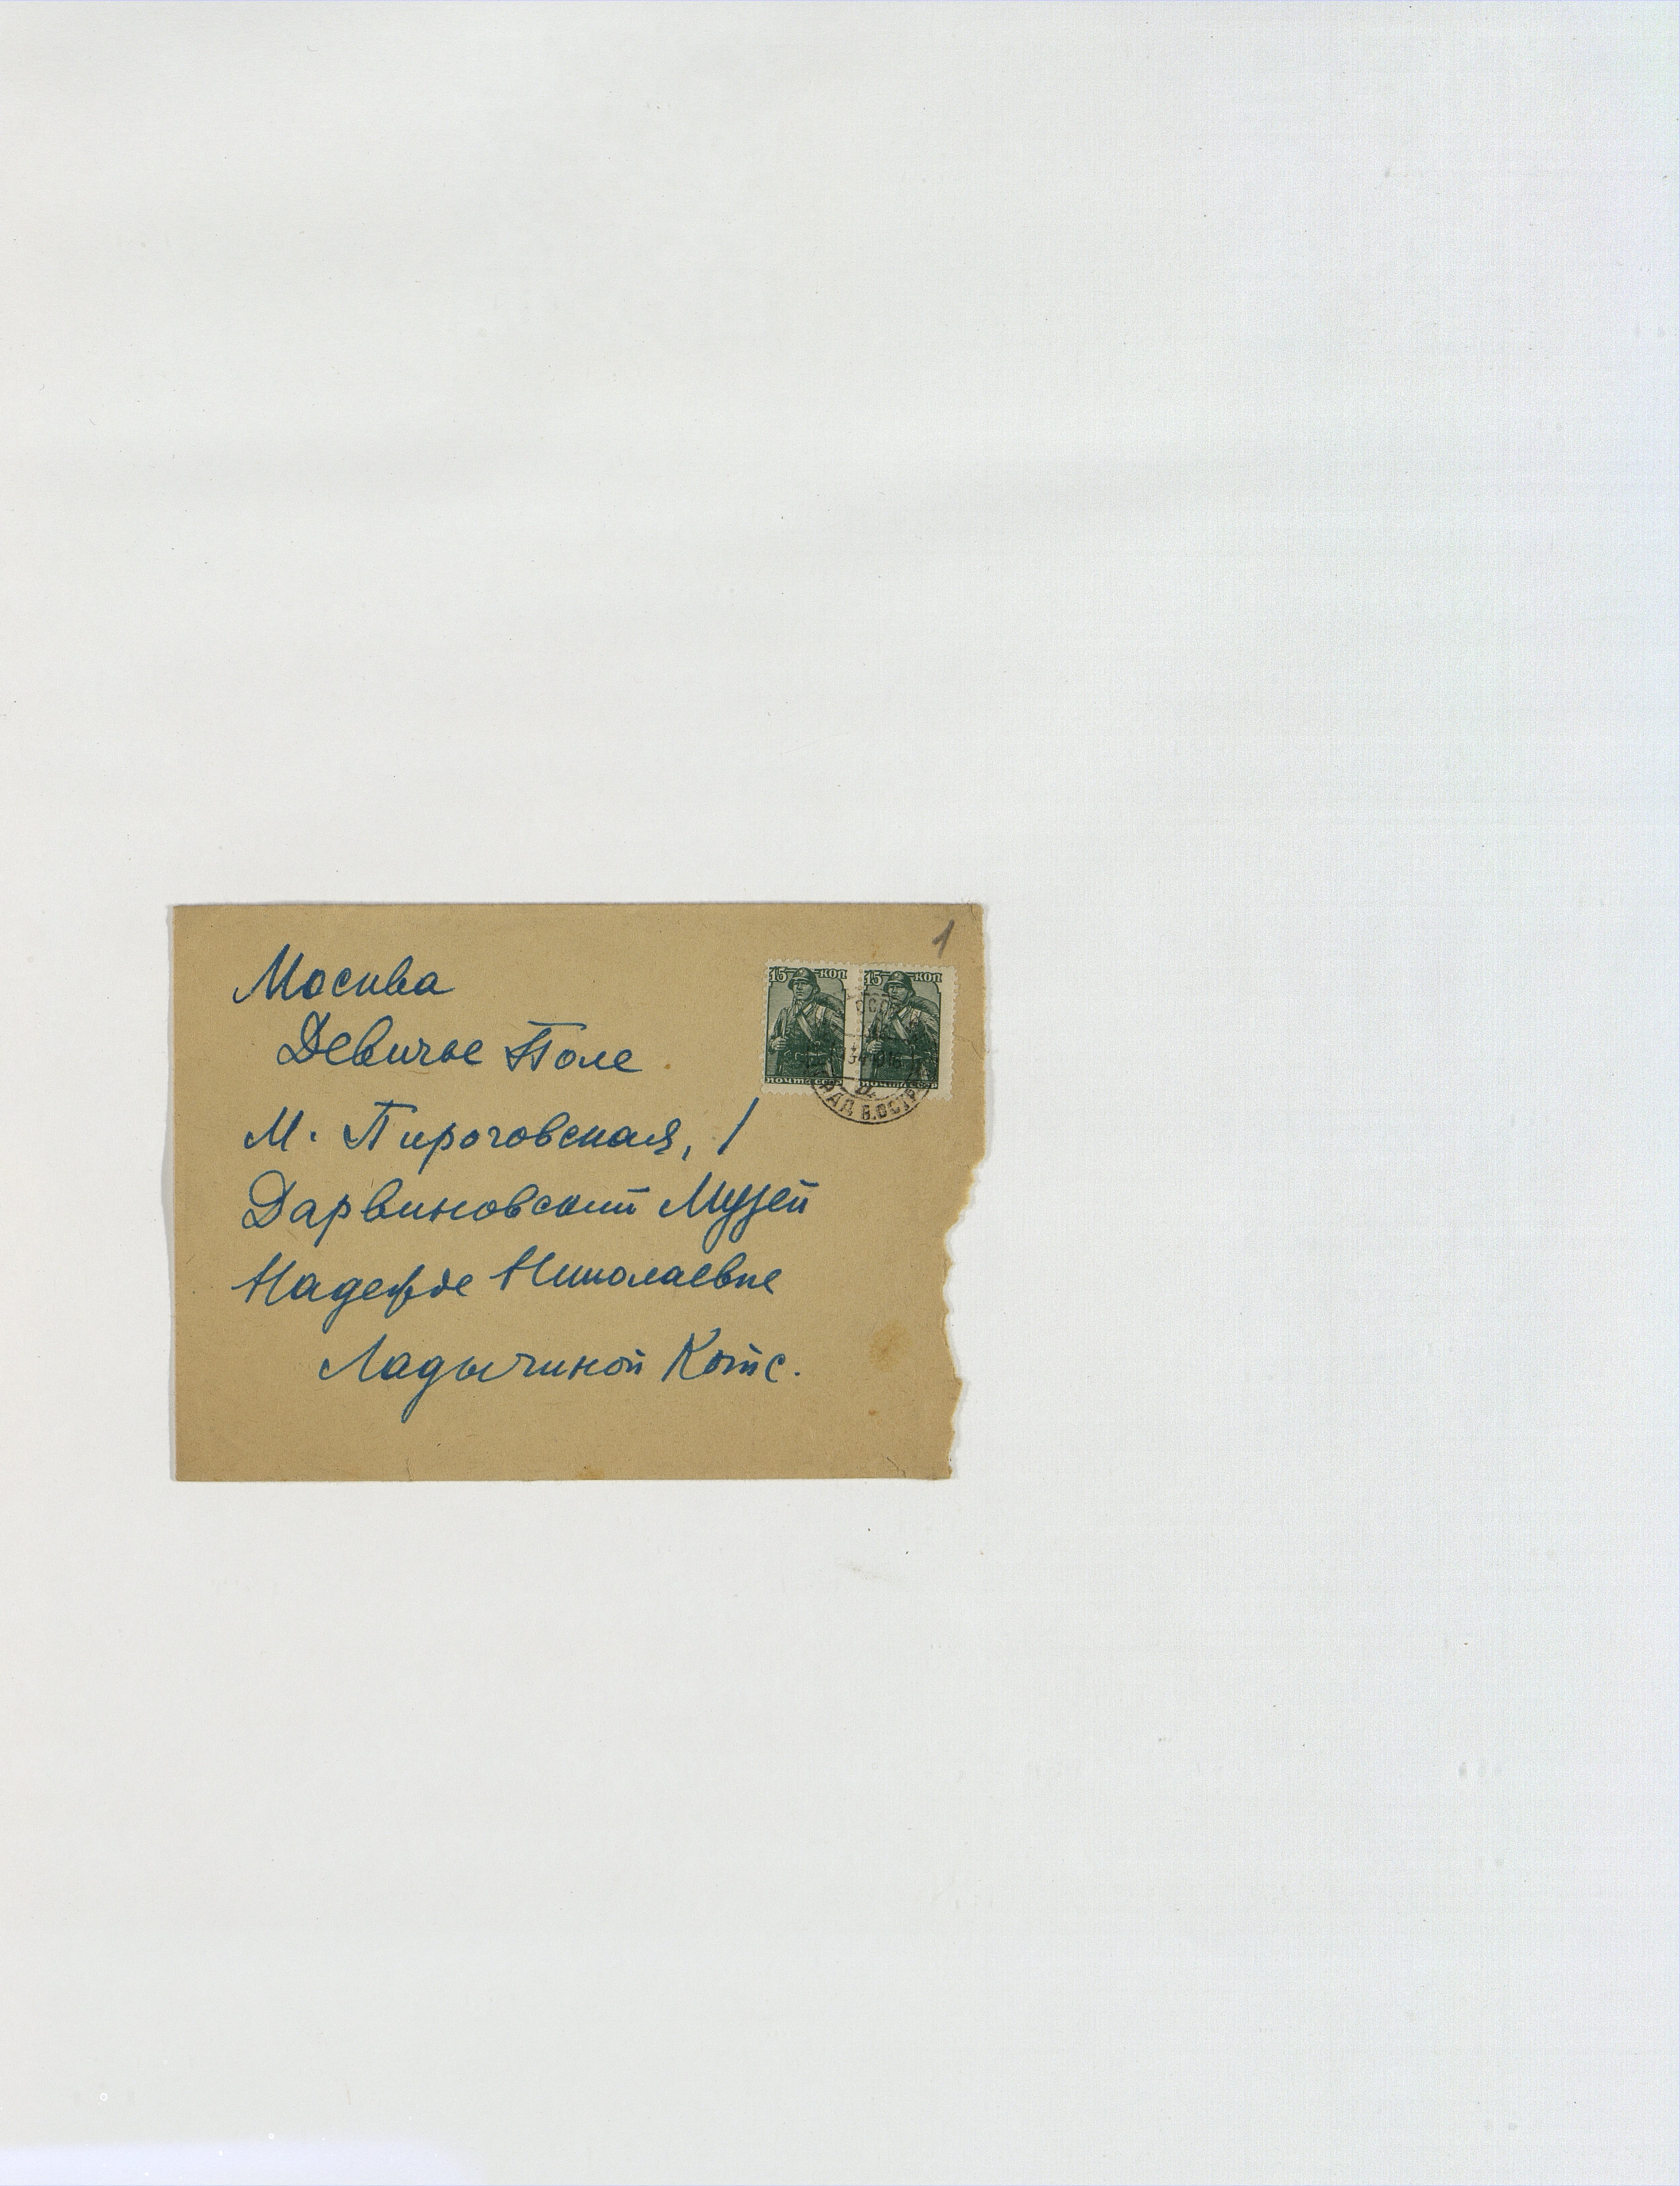 1
Москва
Девичье Поле
М. Пироговская, 1
Дарвиновский Музей
Надежде Николаевне
Ладыгиной Котс.
15 КОП
15 КОП
ПОЧТА СССР
ПОЧТА СССР
В.ОСТР